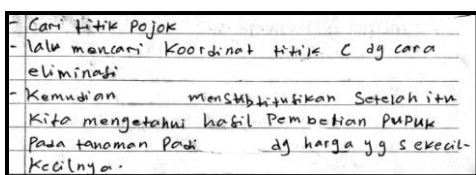 - Cari titik Pojok
- lalu mencari Koordinat titik C dg cara
eliminasi
- Kemudian mensubtitusikan Setelah itu
Kita mengetahui hasil Pembelian PUPUK
Pada tanaman Padi dg harga yg sekecil-
Kecilnya.